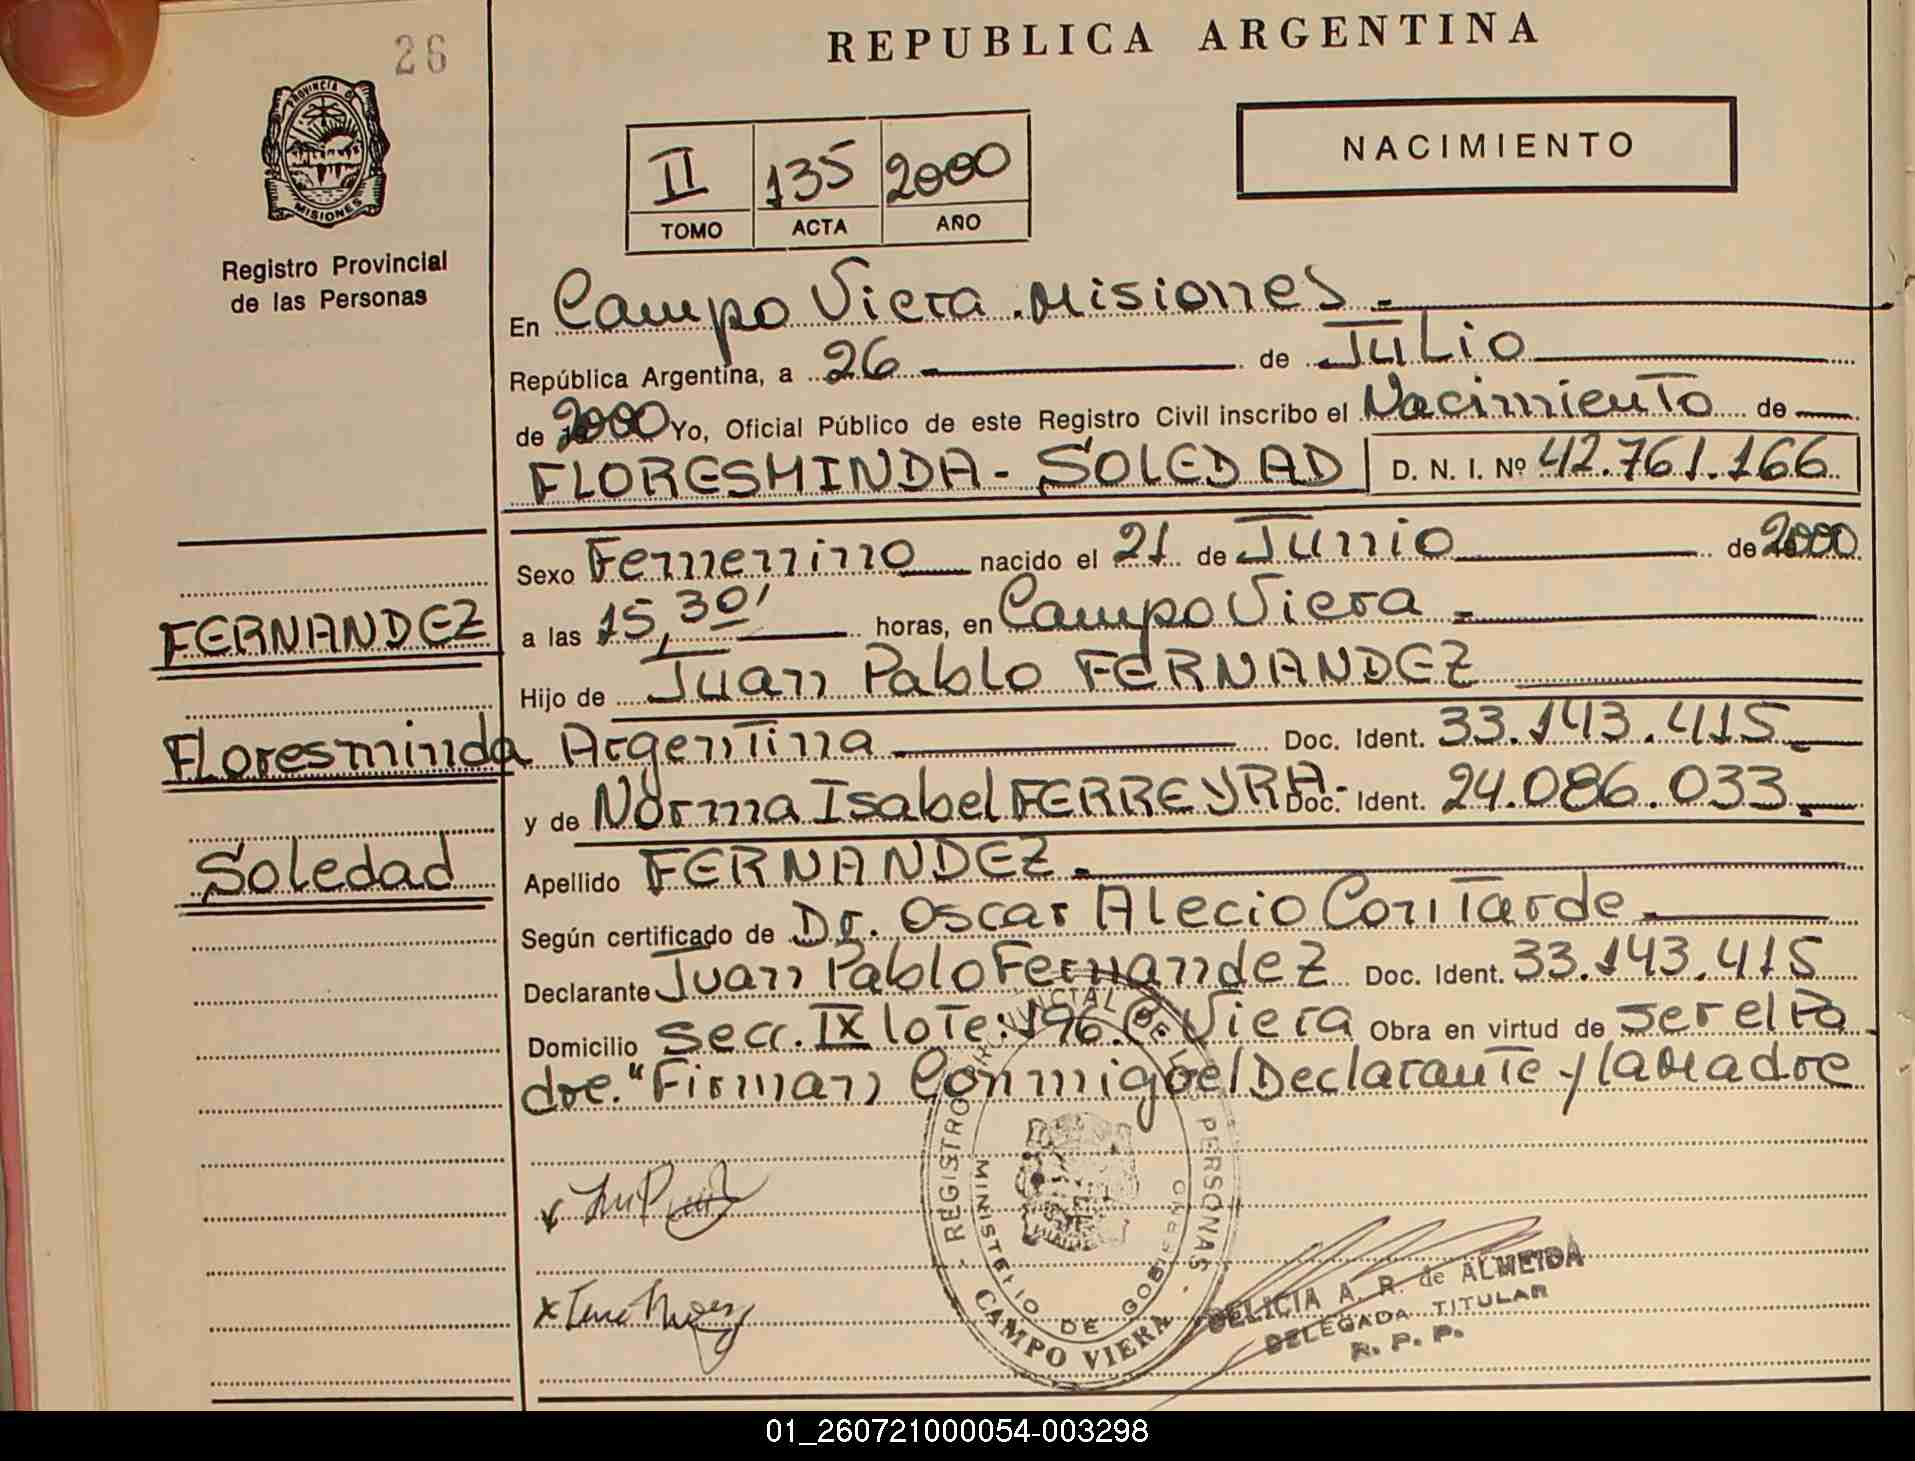 26
REPUBLICA ARGENTINA
PROVINCIA DE
MISIONES
Registro Provincial
de las Personas
NACIMIENTO
II 135 2000
TOMO ACTA AÑO
En Campo Viera. Misiones.-
República Argentina, a 26 de Julio
de 2000 Yo, Oficial Público de este Registro Civil inscribo el Nacimiento de
FLORESMINDA - SOLEDAD D. N. I. Nº 42.761.166
Sexo Femenino nacido el 21 de Junio de 2000
FERNANDEZ
a las 15,30' horas, en Campo Viera.-
Hijo de Juan Pablo FERNANDEZ
Floresminda
Argentina Doc. Ident. 33.143.415.-
y de Norma Isabel FERREYRA- Doc. Ident. 24.086.033.-
Soledad
Apellido FERNANDEZ.-
Según certificado de Dr. Oscar Alecio Contarde.-
Declarante Juan Pablo Fernandez Doc. Ident. 33.143.415
Domicilio Secc. IX lote: 196. C. Viera Obra en virtud de ser el Pa
dre. "Firman Conmigo el Declarante y la Madre
REGISTRO PROVINCIAL DE LAS PERSONAS
MINISTERIO DE GOBIERNO
CAMPO VIERA
DELICIA A. R. de ALMEIDA
DELEGADA TITULAR
R. P. P.
01_260721000054-003298